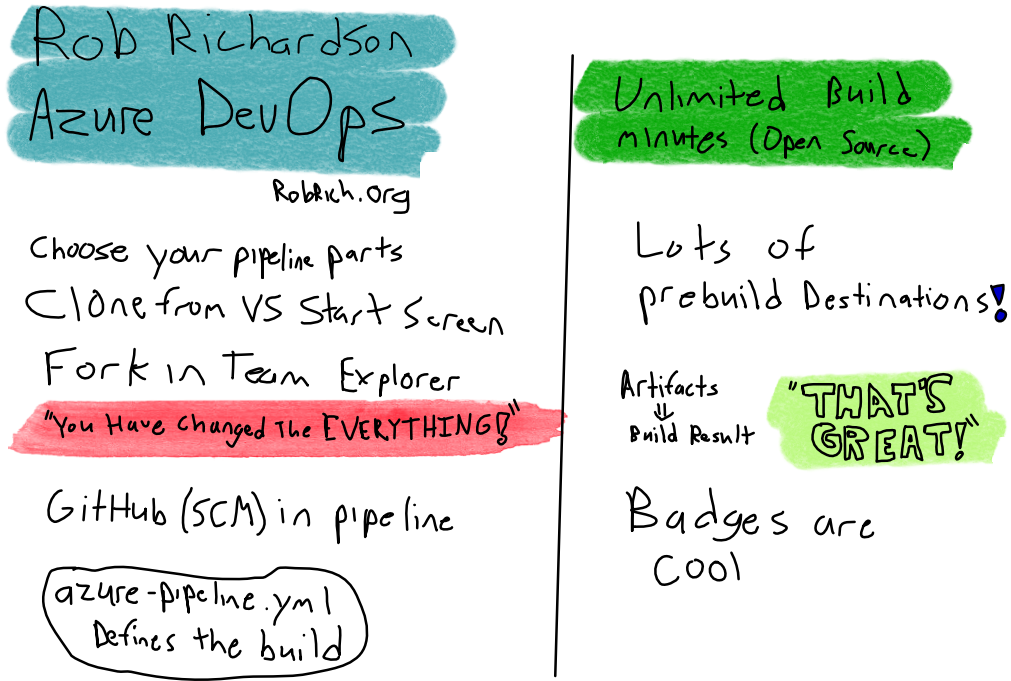 Rob Richardson
Azure DevOps
RobRich.org
Choose your pipeline parts
Clone from VS Start Screen
Fork in Team Explorer
"You Have Changed The EVERYTHING!"
GitHub (SCM) in pipeline
azure-pipeline.yml
Defines the build
Unlimited Build
minutes (Open Source)
Lots of
prebuild Destinations!
Artifacts
⇓
Build Result
"THAT'S
GREAT!"
Badges are
cool